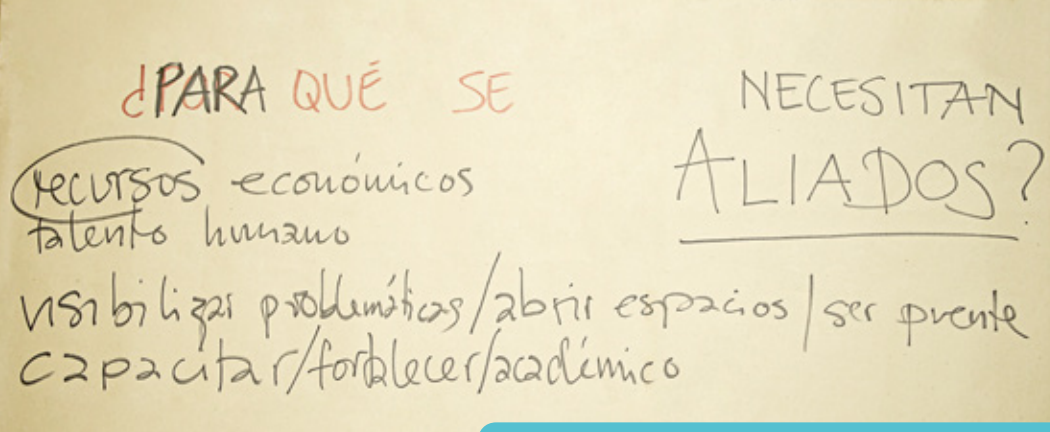 ¿PARA QUÉ SE NECESITAN
ALIADOS?
recursos económicos
talento humano
visibilizar problemáticas/abrir espacios/ser puente
capacitar/fortalecer/académico